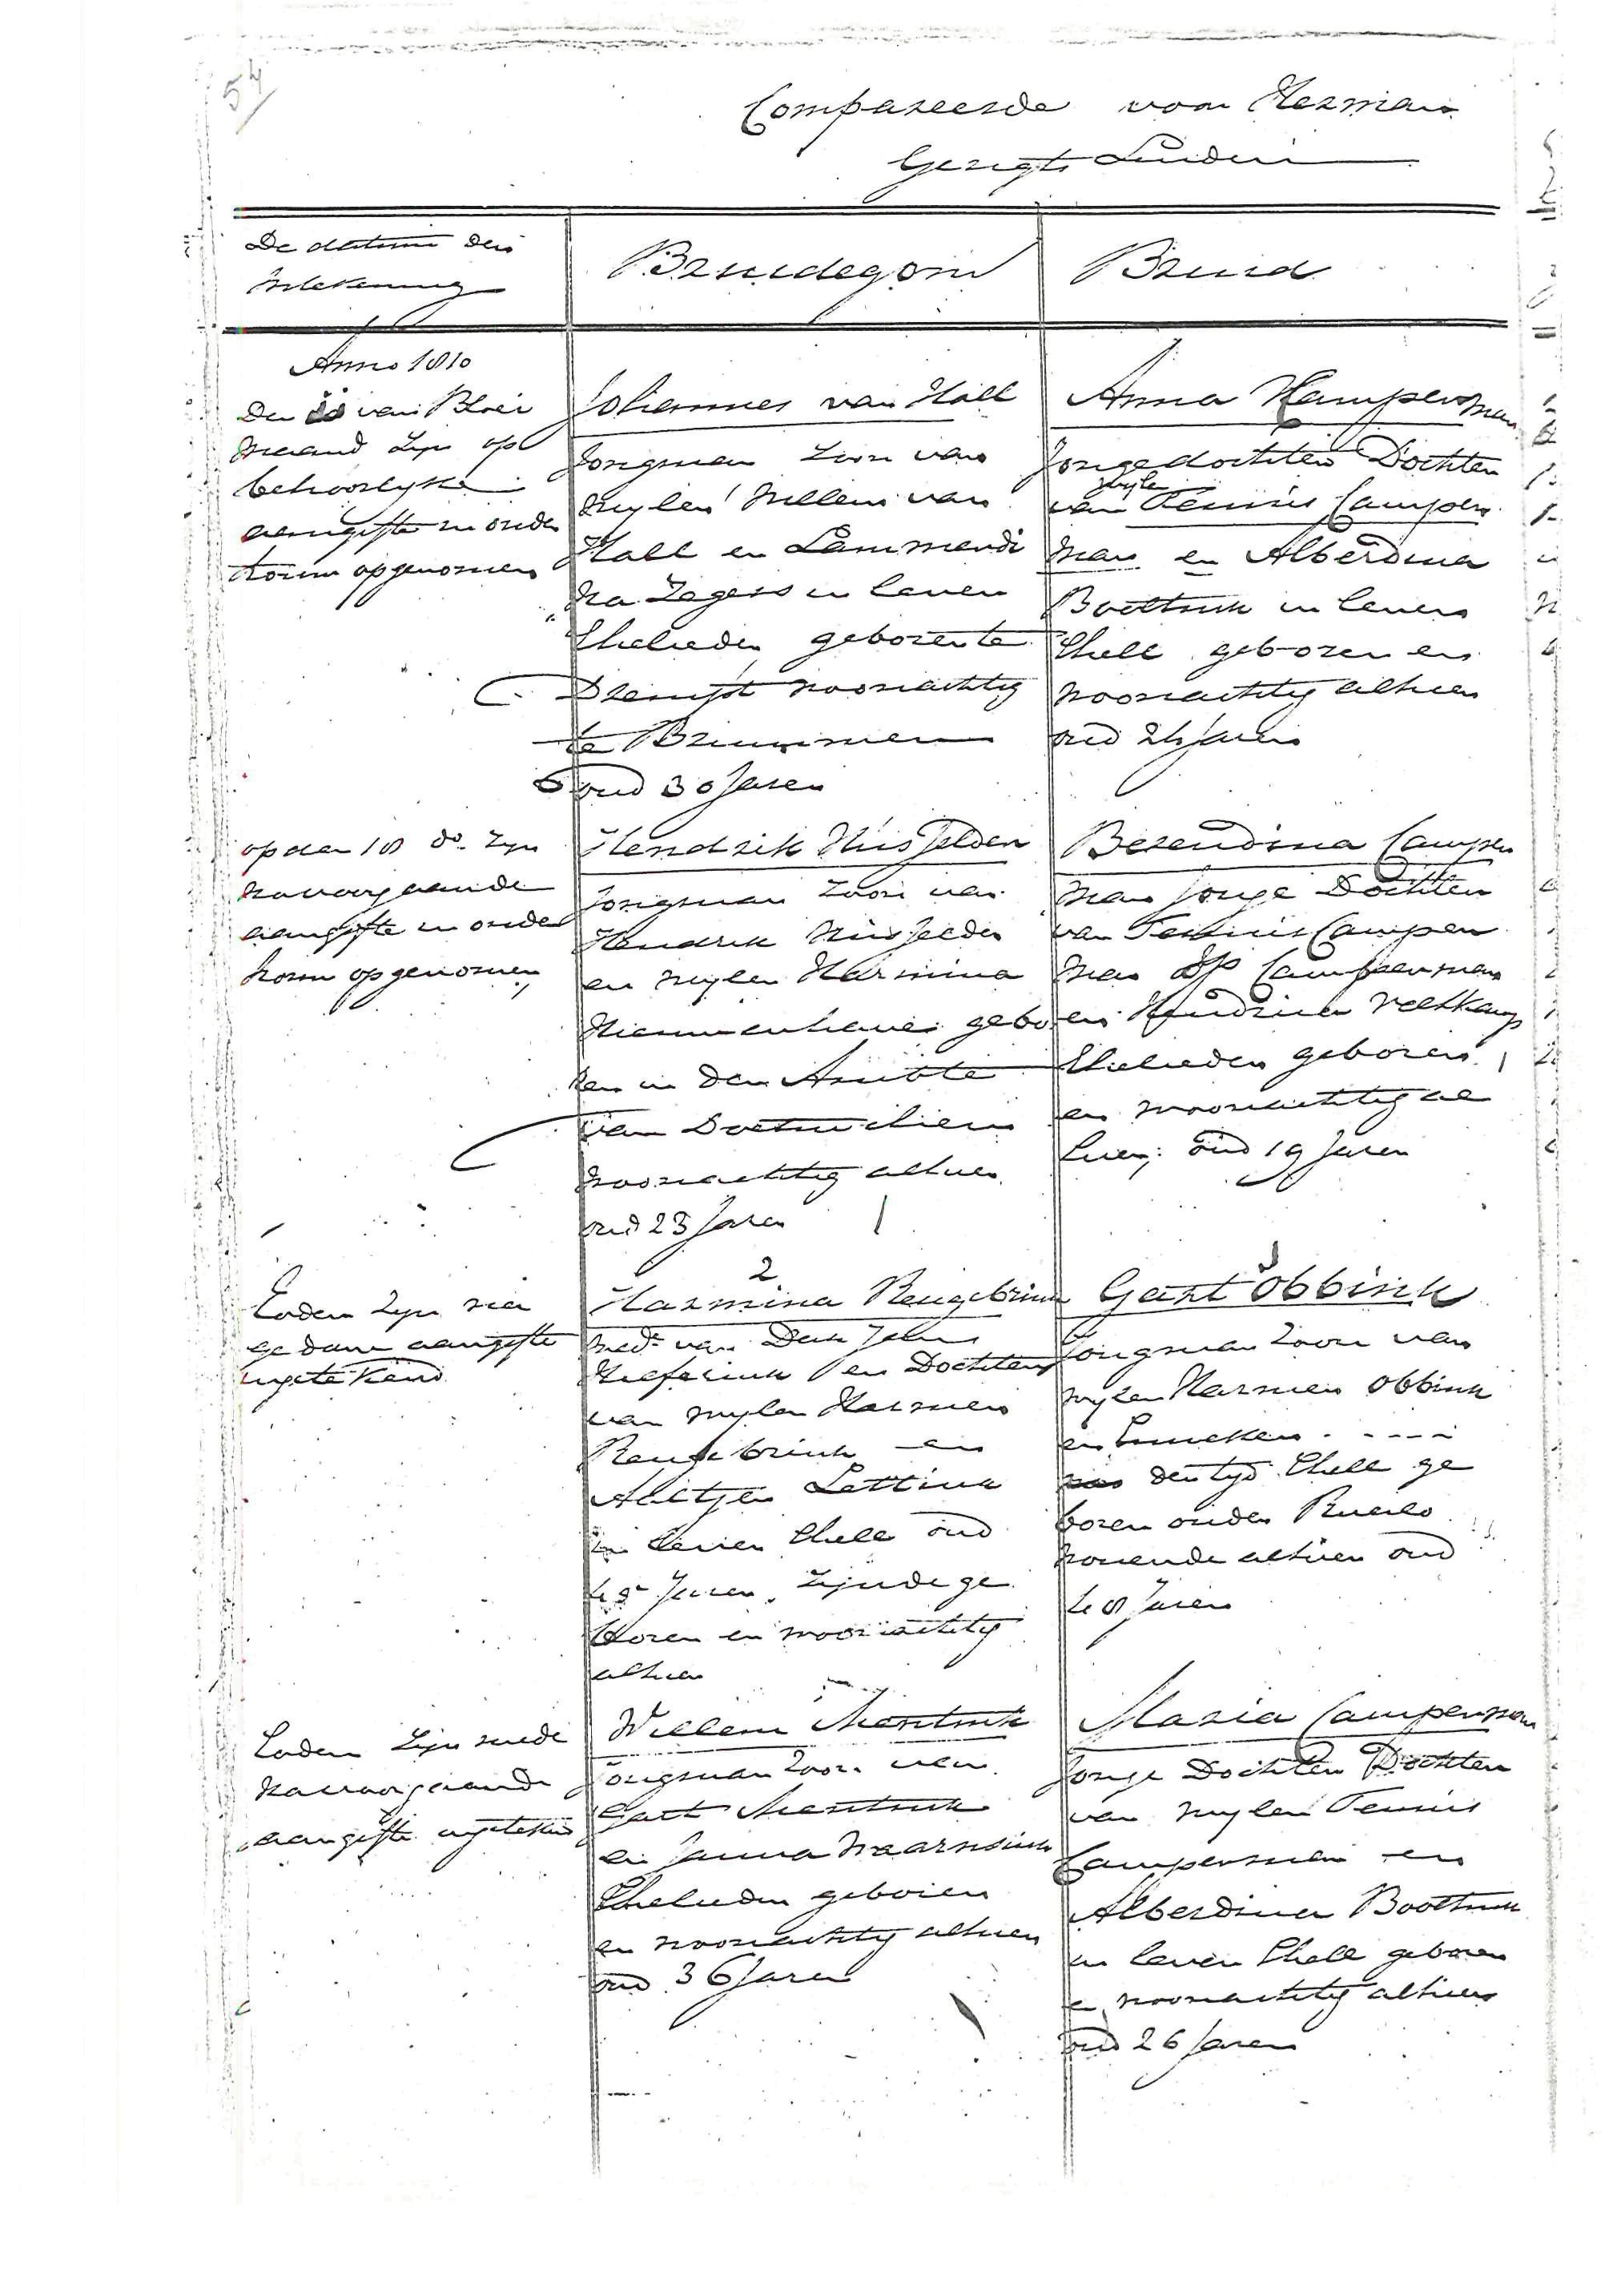 54
Compareerde voor Herman
Gerigts Luiden
De datum der
Intekening
Bruidegom
Bruid
Anno 1810
Den van Bloei
maand zyn op
behoorlyke
aangifte in onder
trouw opgenomen
Johannes van Hall
Jongman zoon van
wylen Willem van
Hall en Lammerdi
na Zegers in leven
Ehelieden geboren te
Drempt woonachtig
te Brummen
oud 30 Jaren
Anna Kamperman
Jongedochter Dochter
wyle
van Teunis Camper
man en Alberdina
Boeltink in leven
Ehell geboren en
woonachtig alhier
oud 24 Jaren
op den 18 do zyn
na voorgaande
aangifte in onder
trouw opgenomen
Hendrik Huisjelden
Jongman zoon van
Hendrik Huisjelden
en wylen Harmina
Nieuwenhave gebo
ren in den Ambte
van Doetinchem
woonachtig alhier
oud 23 Jaren
Berendina Camper
man Jonge Dochter
van Teunis Camper
man op Camperman
en Hendrina Veltkamp
Ehelieden geboren
en woonachtig al
hier; oud 19 Jaren
Eodem zyn na
gedane aangifte
ingetekend
2
Harmina Reugebrink
wed. van Derk Jan
en Dochter
van wylen Harmen
Reugebrink en
Aeltjen Lettink
in leven Ehell oud
Jaren zynde ge
boren en woonachtig
alhier
Gart Obbink
Jongman zoon van
wylen Harmen Obbink
en Enneken . - - - -
der tyd Ehell ge
boren onder Ruurlo
wonende alhier oud
48 Jaren
Eodem zyn mede
na voorgaande
aangifte ingeteken
Willem Mentink
Jongman zoon van
Gart Mentink
en Janna Waarnsink
Ehelieden geboren
en woonachtig alhier
oud 36 Jaren
Maria Camperman
Jonge Dochter Dochter
van wylen Teunis
Camperman en
Alberdina Booltink
in leven Ehell geboren
en woonachtig alhier
oud 26 Jaren